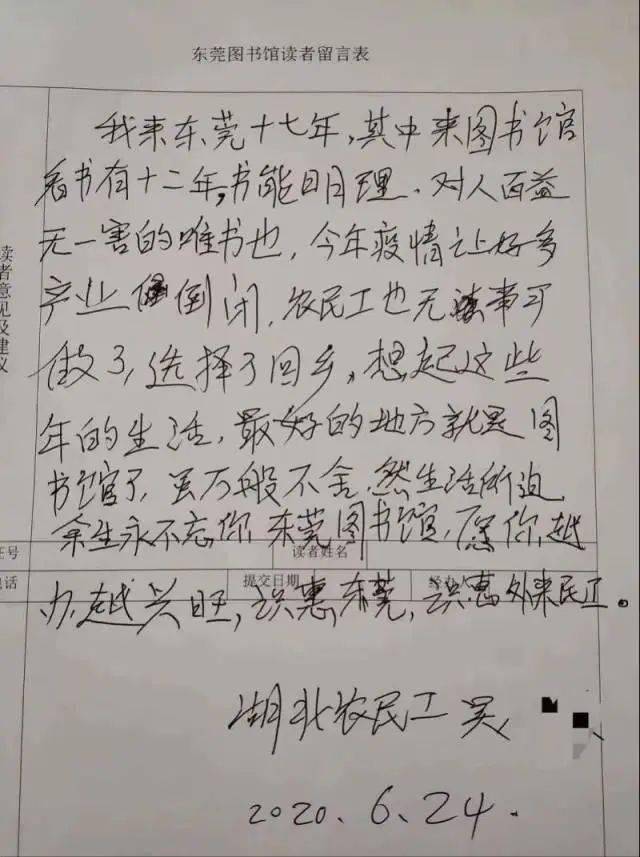 东莞图书馆读者留言表
我来东莞十七年,其中来图书馆
看书有十二年,书能明理、对人百益
无一害的唯书也,今年疫情让好多
产业倒闭,农民工也无事可
做了,选择了回乡,想起这些
年的生活,最好的地方就是图
书馆了,虽万般不舍,然生活所迫,
余生永不忘你,东莞图书馆,愿你越
办越兴旺,识惠东莞,识惠外来民工。
读者意见及建议
证号
读者姓名
电话
提交日期
经办人
湖北农民工 吴
2020.6.24.